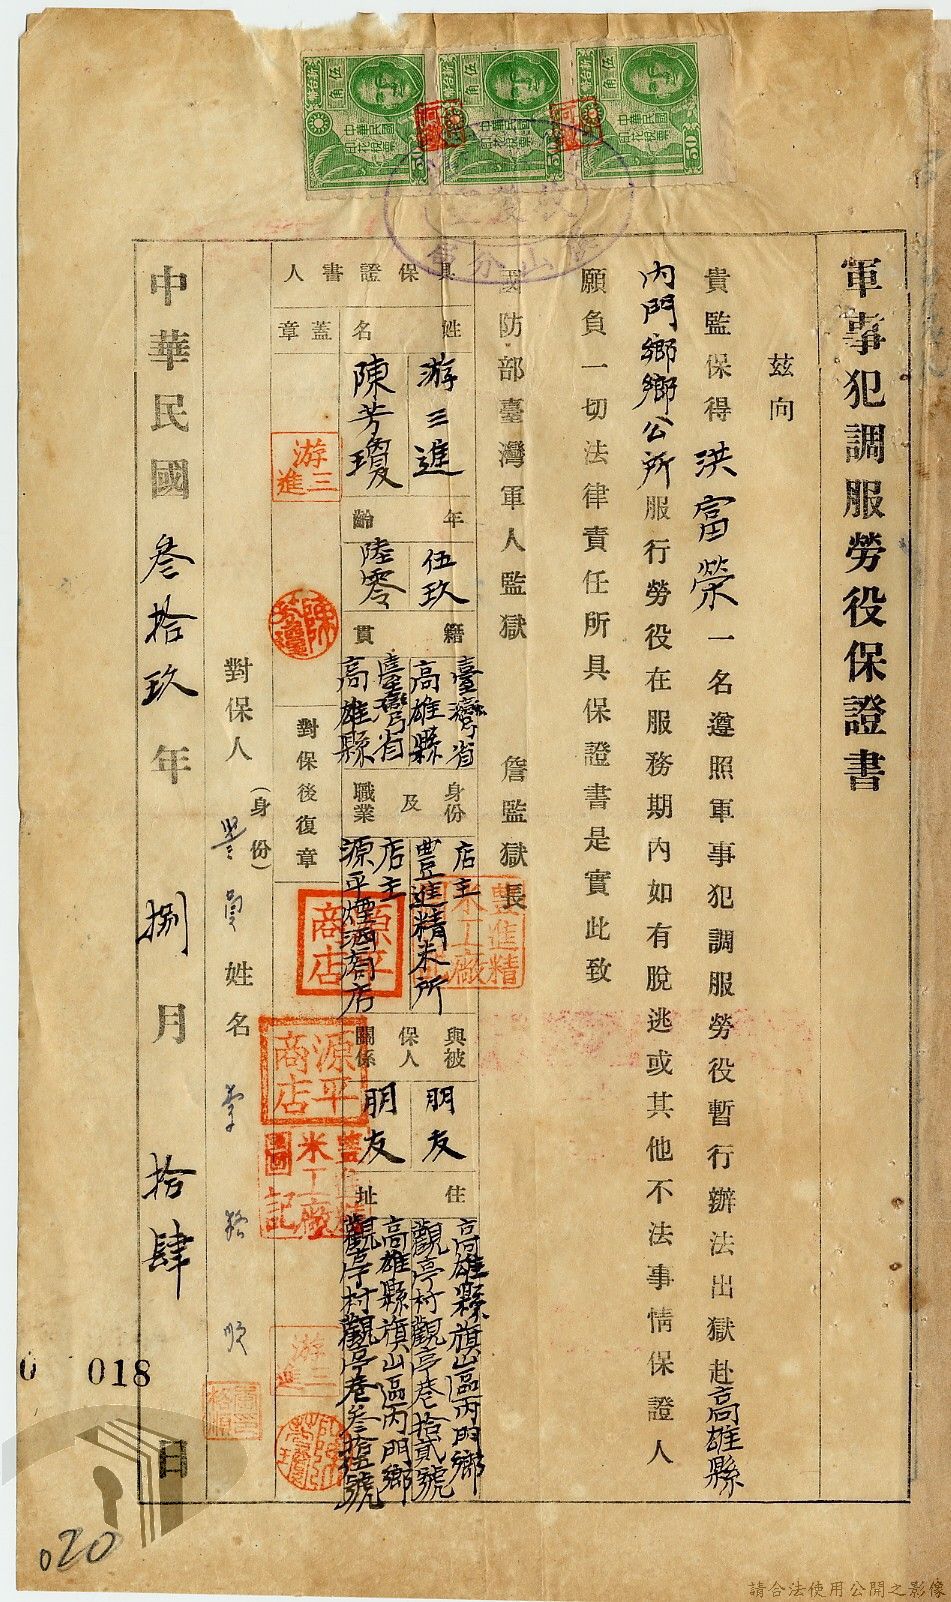 軍事犯調服勞役保證書
茲向
貴監保得洪富榮一名遵照軍事犯調服勞役暫行辦法出獄赴高雄縣
內門鄉鄉公所服行勞役在服務期內如有脫逃或其他不法事情保證人
願負一切法律責任所具保證書是實此致
國防部臺灣軍人監獄 詹監獄長
具保證書人
姓名 年齡 籍貫 身份及職業 與被保人關係 住址
游三進 伍玖 臺灣省高雄縣 店主豐進精米所 朋友 高雄縣旗山區內門鄉觀亭村觀亭巷拾貳號
陳芳瓊 陸零 臺灣省高雄縣 店主源平煙酒商店 朋友 高雄縣旗山區內門鄉觀亭村觀亭巷叁拾號
蓋章 對保後復章
游三進
源平商店
豐進精米工廠
源平商店
游三進
對保人(身份) 姓名
中華民國叁拾玖年捌月拾肆日
伍角
中華民國印花稅票
50
伍角
中華民國印花稅票
50
伍角
中華民國印花稅票
50
018
020
請合法使用公開之影像